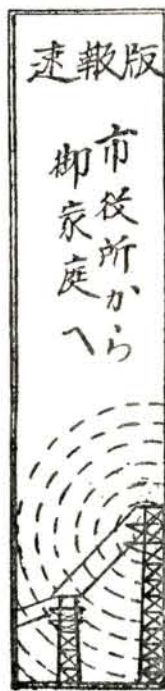 速報版
市役所から
御家庭へ